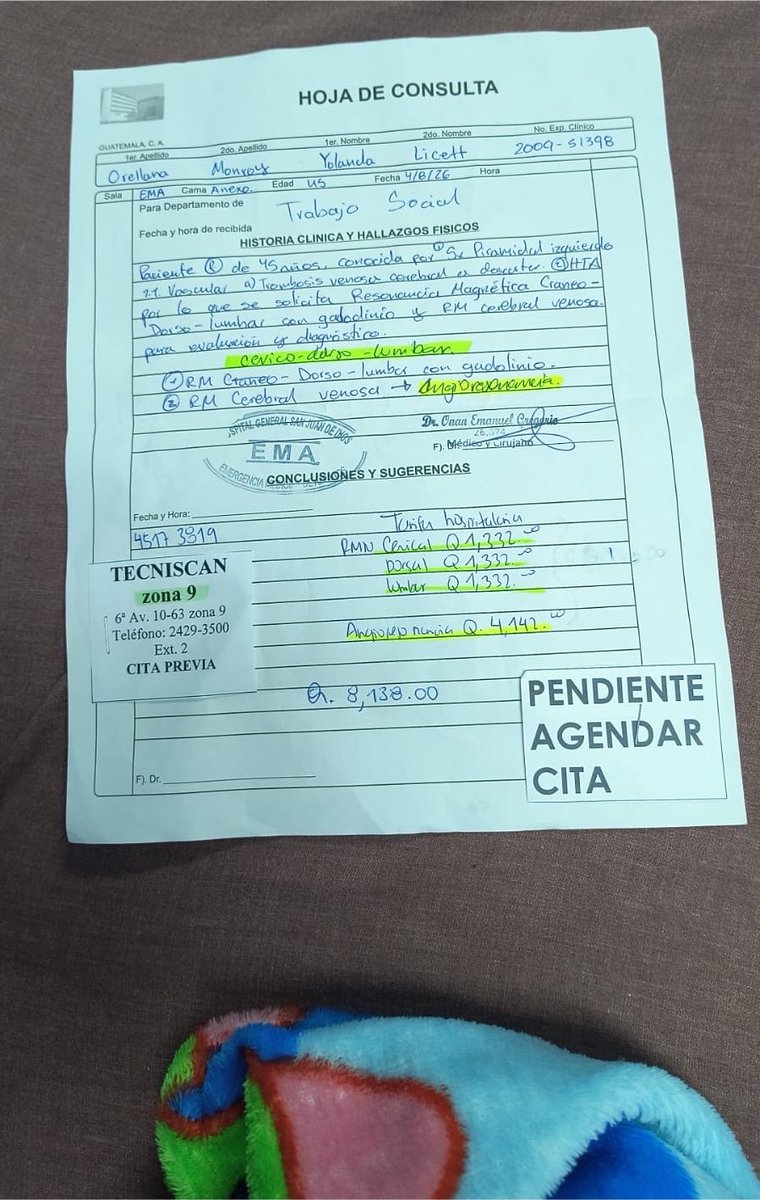 HOJA DE CONSULTA
GUATEMALA, C. A.
1er. Apellido 2do. Apellido 1er. Nombre 2do. Nombre No. Exp. Clínico
Orellana Monroy Yolanda Licett 2009-51398
Sala EMA Cama Anexo. Edad 45 Fecha 4/8/26 Hora
Para Departamento de Trabajo Social
Fecha y hora de recibida
HISTORIA CLINICA Y HALLAZGOS FISICOS
Paciente de 45 años, conocida por ① Sx Piramidal izquierdo
1.1. Vascular a) Trombosis venosa cerebral a descartar. ② HTA
por lo que se solicita Resonancia Magnética Craneo-
Dorso-lumbar con gadolinio y RM cerebral venosa.
para evaluación y diagnóstico.
cevico-dorso-lumbar
① RM Craneo-Dorso-lumbar con gadolinio.
② RM Cerebral venosa → Angioresonancia.
HOSPITAL GENERAL SAN JUAN DE DIOS
EMA
EMERGENCIA
Dr. Onan Emanuel Gregorio
F). Médico y Cirujano
CONCLUSIONES Y SUGERENCIAS
Fecha y Hora:
4517 3819
Tarifa hospitalaria
RMN Cervical Q 1,332.00
Dorsal Q 1,332.00
lumbar Q 1,332.00
Angioresonancia Q. 4,142.00
Q. 8,138.00
TECNISCAN
zona 9
6ª Av. 10-63 zona 9
Teléfono: 2429-3500
Ext. 2
CITA PREVIA
PENDIENTE
AGENDAR
CITA
F). Dr.